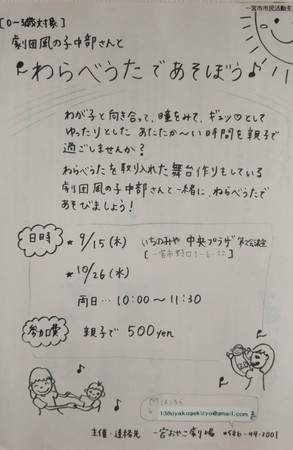 一宮市市民活動支
[0〜3歳対象]
劇団風の子中部さんと
わらべうたであそぼう
わが子と向き合って、瞳をみて、ギュッ♡として
ゆったりとした あたたか〜い時間を親子で
過ごしませんか?
わらべうたを取り入れた舞台作りもしている
劇団風の子中部さんと一緒に、わらべうたで
あそびましょう!
日時
* 9/15(木) いちのみや 中央プラザ
* 10/26(水)
両日… 10:00〜11:30
参加費 親子で 500yen
138oyakogekijyo@gmail.com
主催・連絡先 一宮おやこ劇場 0586-44-2001